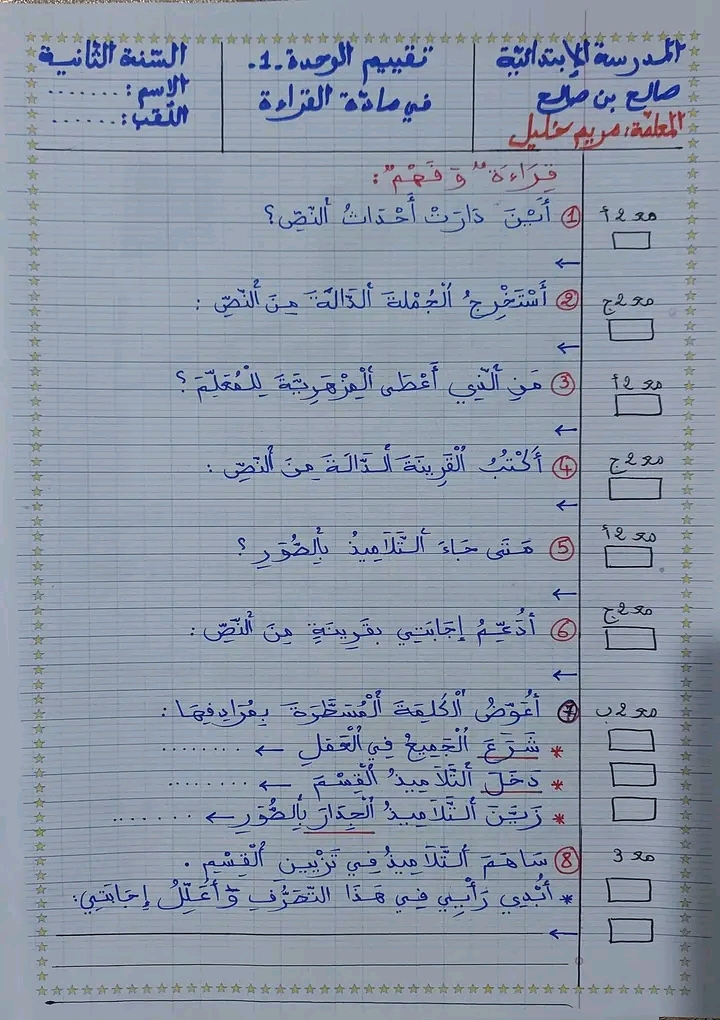 المدرسة الإبتدائيّة
صالح بن صالح
المعلمة: مريم خليل
تقييم الوحدة ـ1ـ
في مادّة القراءة
السّنة الثانية
الاسم: .......
اللّقب: ......
قِرَاءَة "وَ فَهْم":
مع 2 أ
① أَيْنَ دَارَتْ أَحْدَاثُ اَلنَّصِّ؟
←
مع 2 ج
② أَسْتَخْرِجُ اَلْجُمْلَةَ اَلدَّالَّةَ مِنَ اَلنَّصِّ :
←
مع 2 أ
③ مَنِ اَلَّذِي أَعْطَى اَلْمِزْهَرِيَّةَ لِلْمُعَلِّمَ؟
←
مع 2 ج
④ أَكْتُبُ اَلْقَرِينَةَ اَلدَّالَةَ مِنَ اَلنَّصِّ :
←
مع 2 أ
⑤ مَتَى جَاءَ اَلتَّلَامِيذُ بِالصُّوَرِ ؟
←
مع 2 ج
⑥ أُدَعِّمُ إِجَابَتِي بِقَرِينَةٍ مِنَ اَلنَّصِّ :
←
مع 2 ب
⑦ أُعَوِّضُ اَلْكَلِمَةَ اَلْمُسَطَّرَةَ بِمُرَادِفِهَا :
* شَرَعَ اَلْجَمِيعُ فِي اَلْعَمَلِ ← ........
* دَخَلَ اَلتَّلَامِيذُ اَلْقِسْمَ ← ........
* زَيَّنَ اَلتَّلَامِيذُ اَلْجِدَارَ بِالصُّوَرِ ← ........
مع 3
⑧ سَاهَمَ اَلتَّلَامِيذُ فِي تَزْيِينِ اَلْقِسْمِ .
* أُبْدِي رَأْيِي فِي هَذَا التَّصَرُّفِ وَأُعَلِّلُ إِجَابَتِي:
←